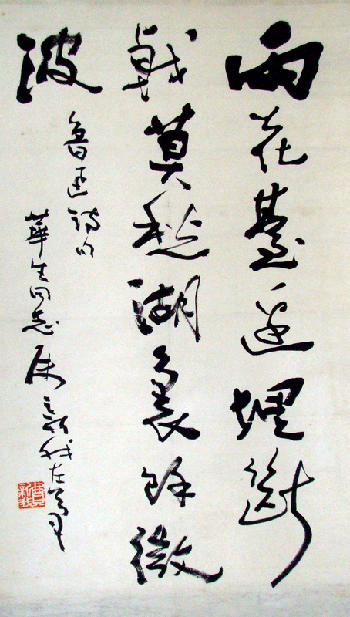 雨花臺邊埋斷
戟莫愁湖裏餘微
波
魯迅詩句
華生同志屬
新我左筆